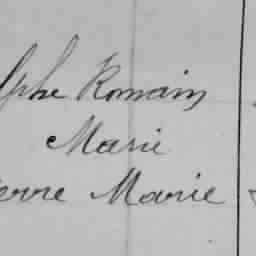 lphe Romain
Marie
ierre Marie